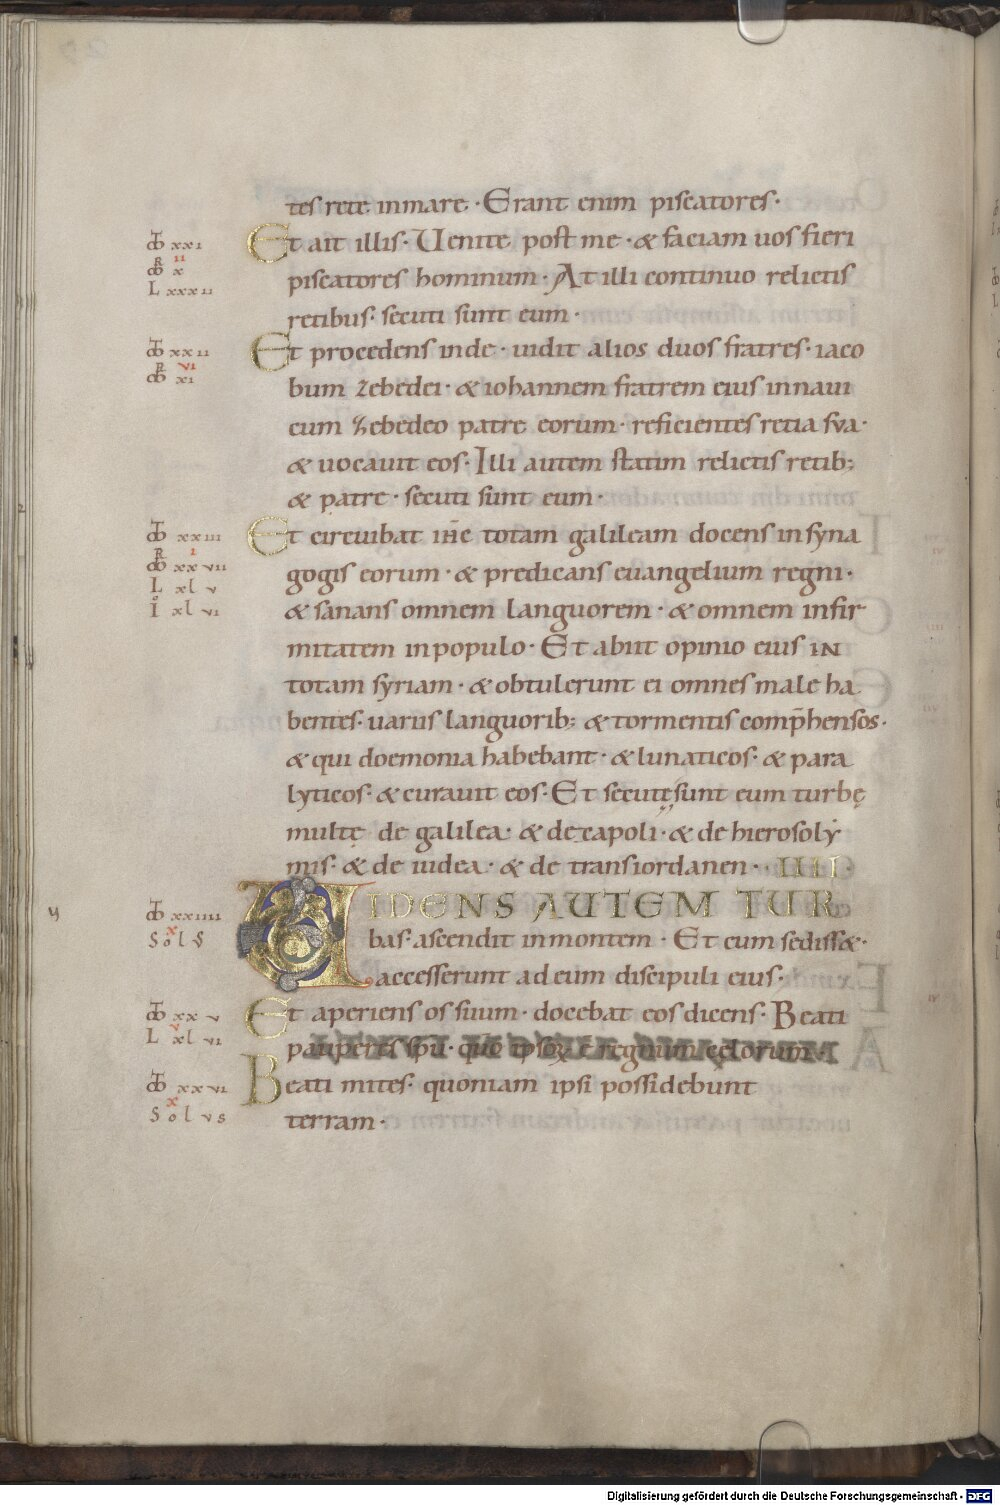 tes rete inmare · Erant enim piscatores ·
Et ait illis · Uenite post me · & faciam uos fieri
piscatores hominum · At illi continuo relictis
retibus · secuti sunt eum ·
Et procedens inde · uidit alios duos fratres · iaco
bum zebedei · & iohannem fratrem eius innaui
cum zebedeo patre eorum · reficientes retia sua ·
& uocauit eos · Illi autem statim relictis retib;
& patre · secuti sunt eum ·
Et circuibat ih̄c totam galileam docens insyna
gogis eorum · & predicans euangelium regni ·
& sanans omnem languorem · & omnem infir
mitatem inpopulo · Et abiit opinio eius IN
totam syriam · & obtulerunt ei omnes male ha
bentes · uariis languorib; & tormentis comp̄hensos ·
& qui doemonia habebant · & lunaticos · & para
lyticos · & curauit eos · Et secutę sunt eum turbę
multę de galilea · & decapoli · & de hierosoly
mis · & de iudea · & de transiordanen · IIII ·
UIDENS AUTEM TUR
bas · ascendit inmontem · Et cum sediss& ·
accesserunt adeum discipuli eius ·
Et aperiens os suum · docebat eos dicens · Beati
pauperes spu · quo ipsoꝝ ē regnum cęlorum ·
Beati mites · quoniam ipsi possidebunt
terram ·
xxi
ii
x
L xxxii
xxii
vi
xi
xxiii
i
xxvii
L xlv
I xlvi
xxiiii
x
Sol
xxv
v
L xlvi
xxvi
x
Sol
Digitalisierung gefördert durch die Deutsche Forschungsgemeinschaft - DFG